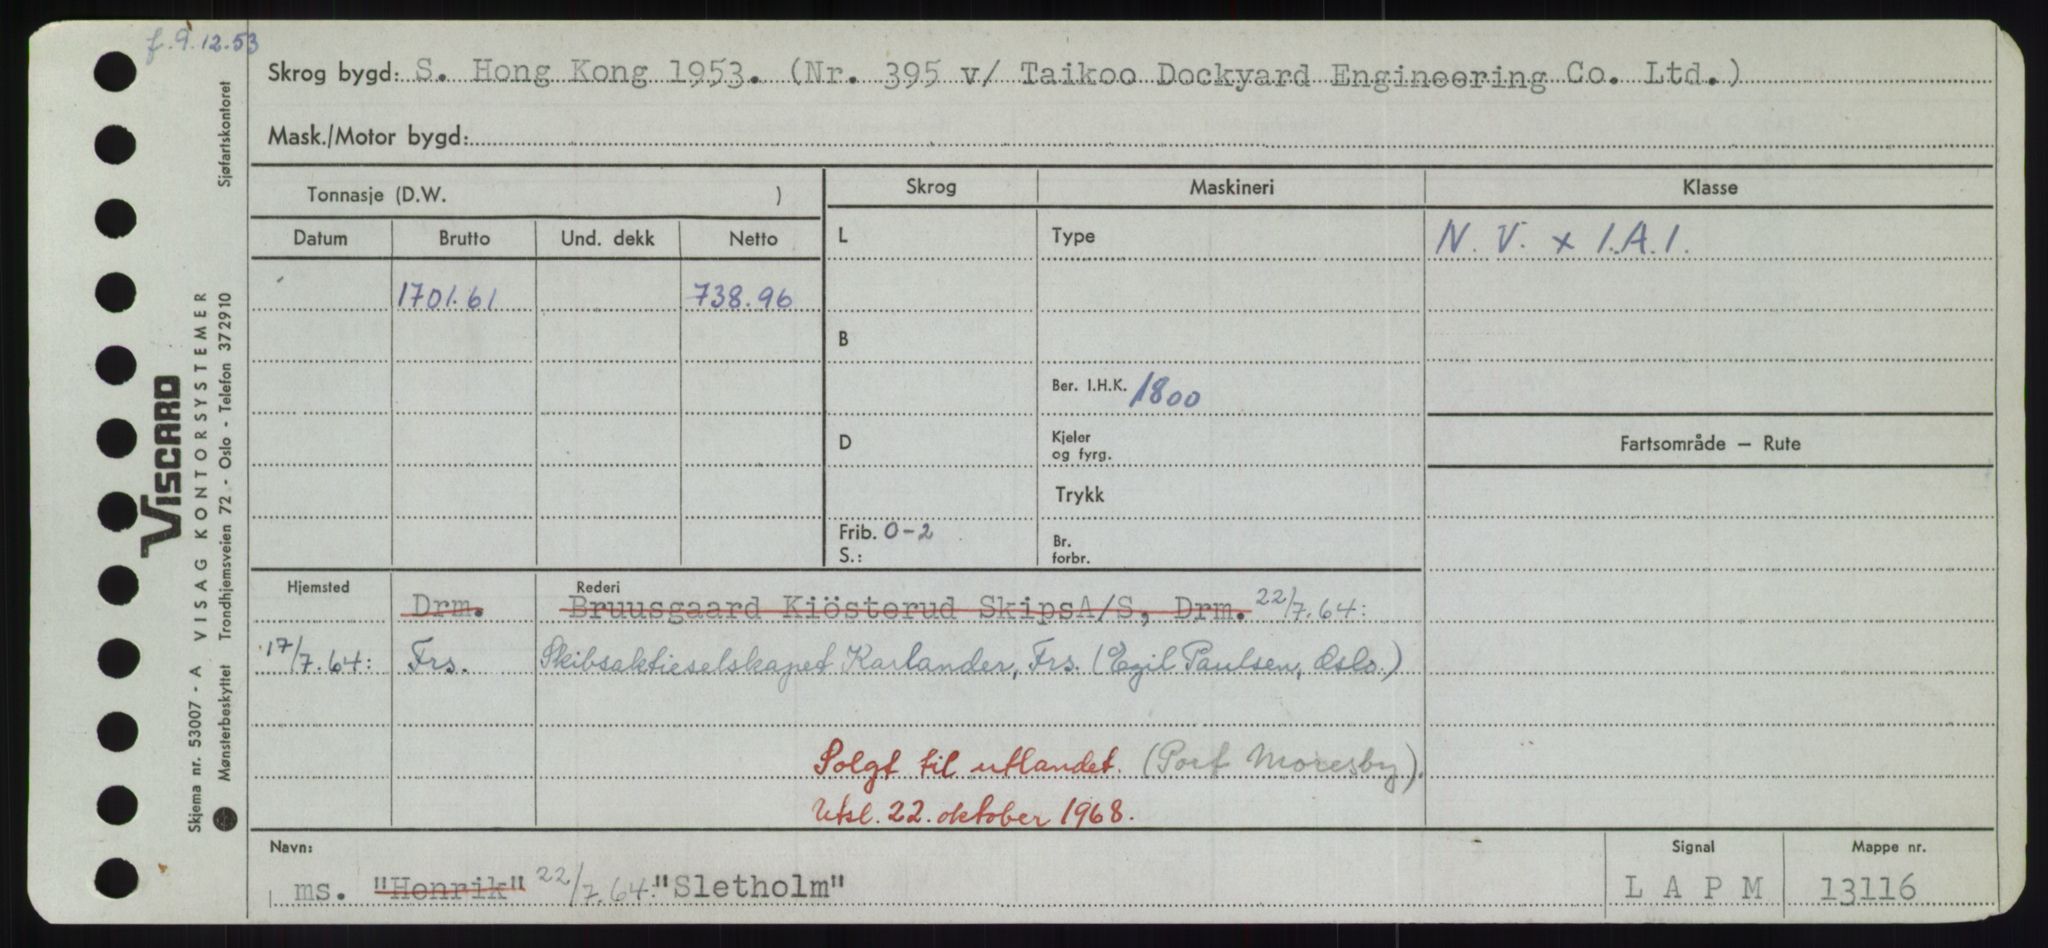 f. 9.12.53
Skrog bygd: S. Hong Kong 1953. (Nr. 395 v/ Taikoo Dockyard Engineering Co. Ltd.)
Mask./Motor bygd:
Tonnasje (D.W. )
Skrog
Maskineri
Klasse
Datum
Brutto
Und. dekk
Netto
L
Type
N. V. x I.A.I.
1701.61
738.96
B
Ber. I.H.K. 1800
D
Kjeler
og fyrg.
Fartsområde — Rute
Trykk
Frib. 0-2
S.:
Br.
forbr.
Hjemsted
Rederi
Drm.
Bruusgaard Kiösterud SkipsA/S, Drm. 22/7.64:
17/7.64:
Frs.
Skibsaktieselskapet Karlander, Frs. (Egil Paulsen, Oslo.)
Solgt til utlandet. (Port Moresby).
Utsl. 22. oktober 1968.
Navn:
Signal
Mappe nr.
ms. "Henrik" 22/7.64: "Sletholm"
L A P M
13116
VISCARD
Skjema nr. 53007 - A VISAG KONTORSYSTEMER
Mønsterbeskyttet Trondhjemsveien 72 - Oslo - Telefon 372910 Sjøfartskontoret